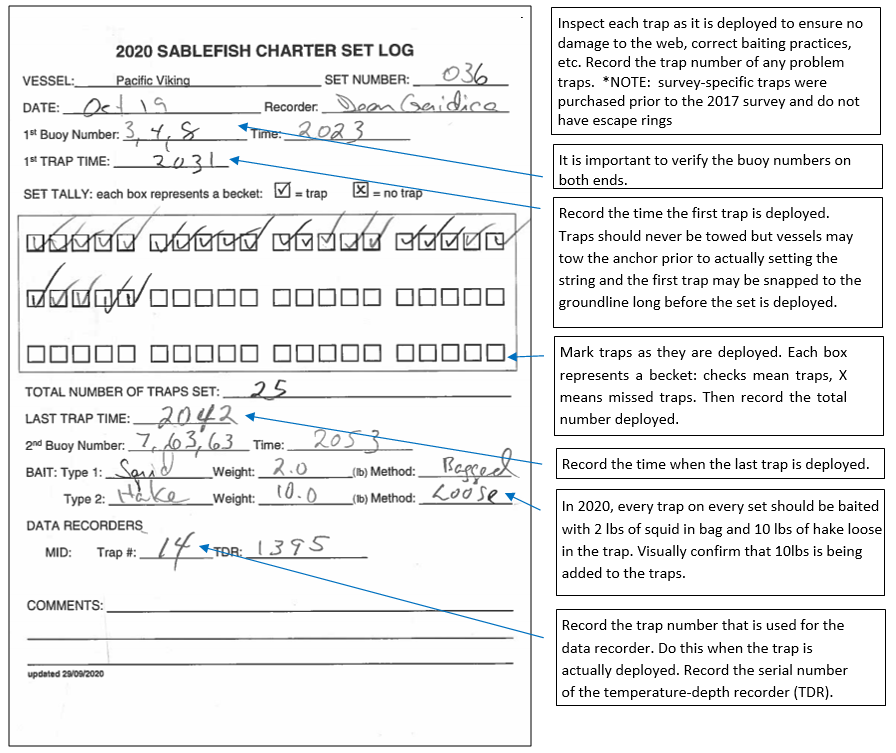 2020 SABLEFISH CHARTER SET LOG
VESSEL: Pacific Viking SET NUMBER: 036
DATE: Oct 19 Recorder: Dean Gaidica
1st Buoy Number: 3, 4, 8 Time: 2023
1st TRAP TIME: 2031
SET TALLY: each box represents a becket: ☑ = trap ☒ = no trap
TOTAL NUMBER OF TRAPS SET: 25
LAST TRAP TIME: 2042
2nd Buoy Number: 7, 63, 63 Time: 2053
BAIT: Type 1: Squid Weight: 2.0 (lb) Method: Bagged
Type 2: Hake Weight: 10.0 (lb) Method: Loose
DATA RECORDERS
MID: Trap #: 14 TDR: 1395
COMMENTS:
updated 29/09/2020
Inspect each trap as it is deployed to ensure no
damage to the web, correct baiting practices,
etc. Record the trap number of any problem
traps. *NOTE: survey-specific traps were
purchased prior to the 2017 survey and do not
have escape rings
It is important to verify the buoy numbers on
both ends.
Record the time the first trap is deployed.
Traps should never be towed but vessels may
tow the anchor prior to actually setting the
string and the first trap may be snapped to the
groundline long before the set is deployed.
Mark traps as they are deployed. Each box
represents a becket: checks mean traps, X
means missed traps. Then record the total
number deployed.
Record the time when the last trap is deployed.
In 2020, every trap on every set should be baited
with 2 lbs of squid in bag and 10 lbs of hake loose
in the trap. Visually confirm that 10lbs is being
added to the traps.
Record the trap number that is used for the
data recorder. Do this when the trap is
actually deployed. Record the serial number
of the temperature-depth recorder (TDR).